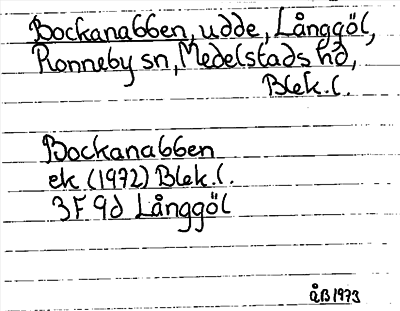 Bockanabben, udde, Långgöl,
Ronneby sn, Medelstads hd,
Blek. l.
Bockanabben
ek (1972) Blek. l.
3F 9d Långgöl
ÅB 1973